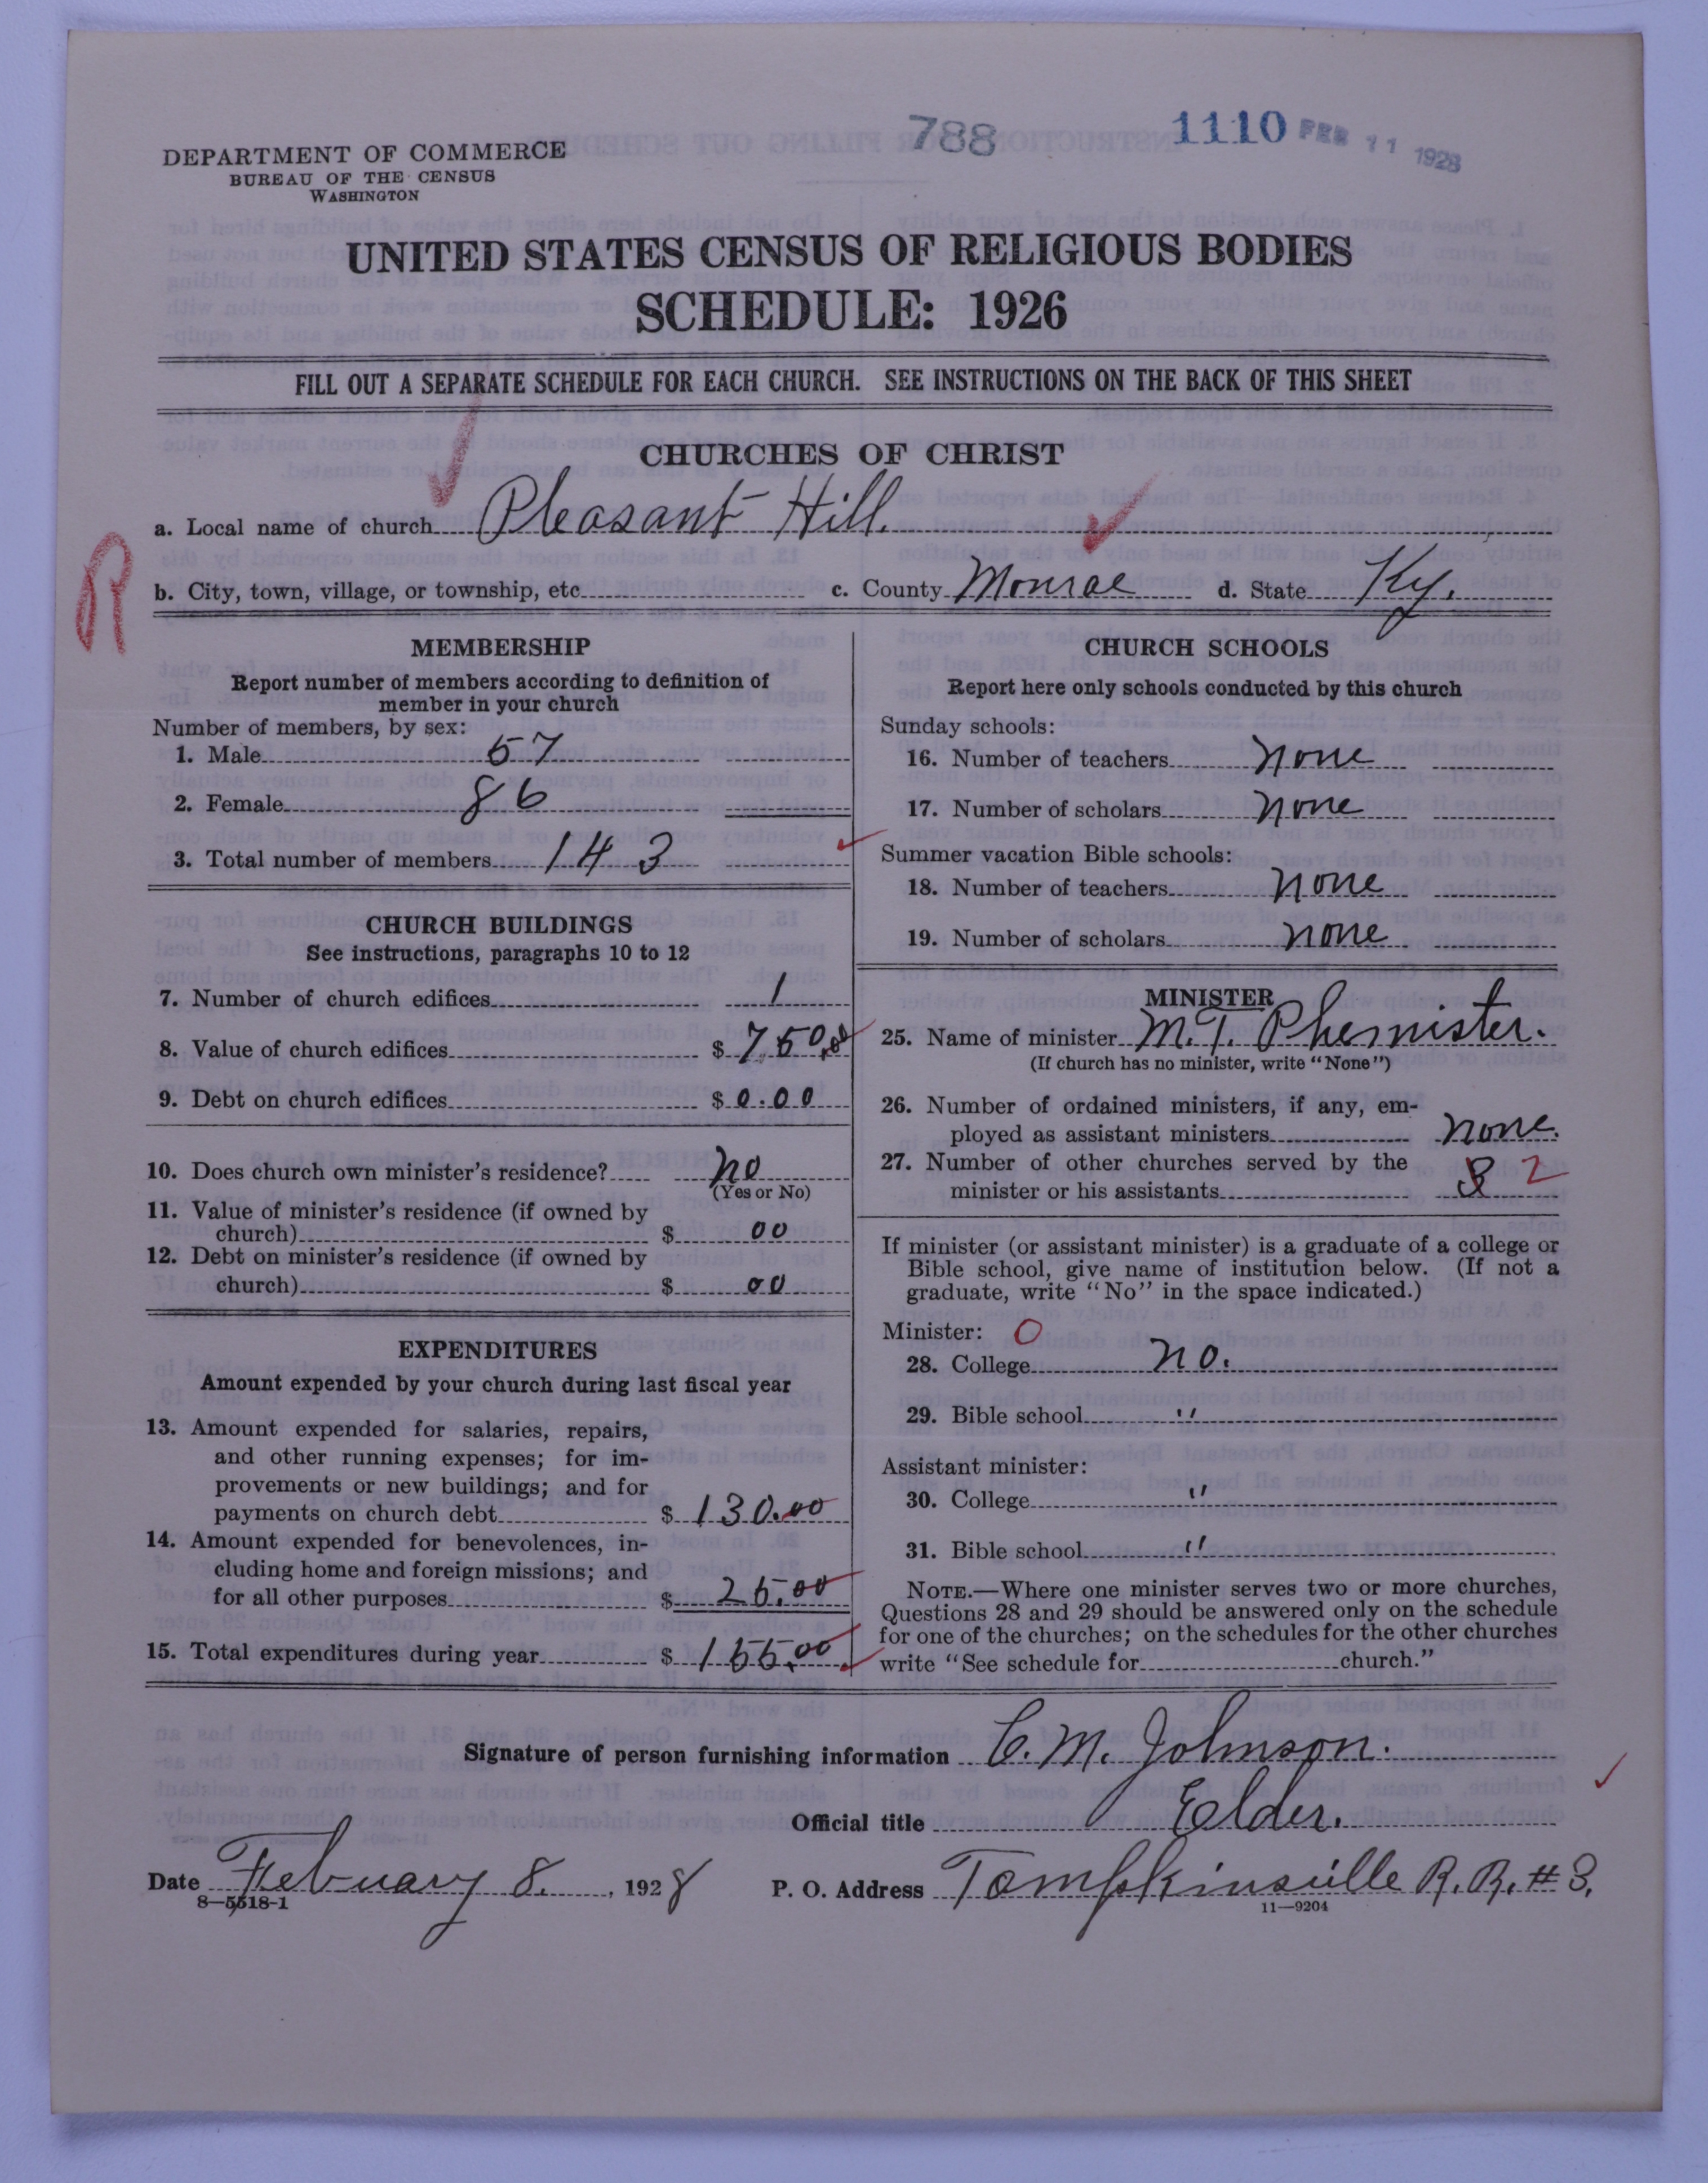 788 1110 FEB 11 1928
DEPARTMENT OF COMMERCE
BUREAU OF THE CENSUS
WASHINGTON
UNITED STATES CENSUS OF RELIGIOUS BODIES
SCHEDULE: 1926
FILL OUT A SEPARATE SCHEDULE FOR EACH CHURCH. SEE INSTRUCTIONS ON THE BACK OF THIS SHEET
CHURCHES OF CHRIST
a. Local name of church Pleasant Hill.
R
b. City, town, village, or township, etc. c. County Monroe d. State Ky.
MEMBERSHIP
Report number of members according to definition of
member in your church
Number of members, by sex:
1. Male 57
2. Female 86
3. Total number of members 143
CHURCH BUILDINGS
See instructions, paragraphs 10 to 12
7. Number of church edifices 1
8. Value of church edifices $ 750.00
9. Debt on church edifices $ 0.00
10. Does church own minister's residence? no
(Yes or No)
11. Value of minister's residence (if owned by
church) $ 00
12. Debt on minister's residence (if owned by
church) $ 00
EXPENDITURES
Amount expended by your church during last fiscal year
13. Amount expended for salaries, repairs,
and other running expenses; for im-
provements or new buildings; and for
payments on church debt $ 130.00
14. Amount expended for benevolences, in-
cluding home and foreign missions; and
for all other purposes $ 25.00
15. Total expenditures during year $ 155.00
CHURCH SCHOOLS
Report here only schools conducted by this church
Sunday schools:
16. Number of teachers none
17. Number of scholars none
Summer vacation Bible schools:
18. Number of teachers none
19. Number of scholars none
MINISTER
25. Name of minister M. T. Phemister.
(If church has no minister, write "None")
26. Number of ordained ministers, if any, em-
ployed as assistant ministers none.
27. Number of other churches served by the
minister or his assistants 3 2
If minister (or assistant minister) is a graduate of a college or
Bible school, give name of institution below. (If not a
graduate, write "No" in the space indicated.)
Minister: O
28. College no.
29. Bible school "
Assistant minister:
30. College "
31. Bible school "
NOTE.—Where one minister serves two or more churches,
Questions 28 and 29 should be answered only on the schedule
for one of the churches; on the schedules for the other churches
write "See schedule for church."
Signature of person furnishing information C. M. Johnson.
Official title Elder.
Date February 8. , 1928 P. O. Address Tompkinsville R. R. # 3.
8—5518-1 11—9204